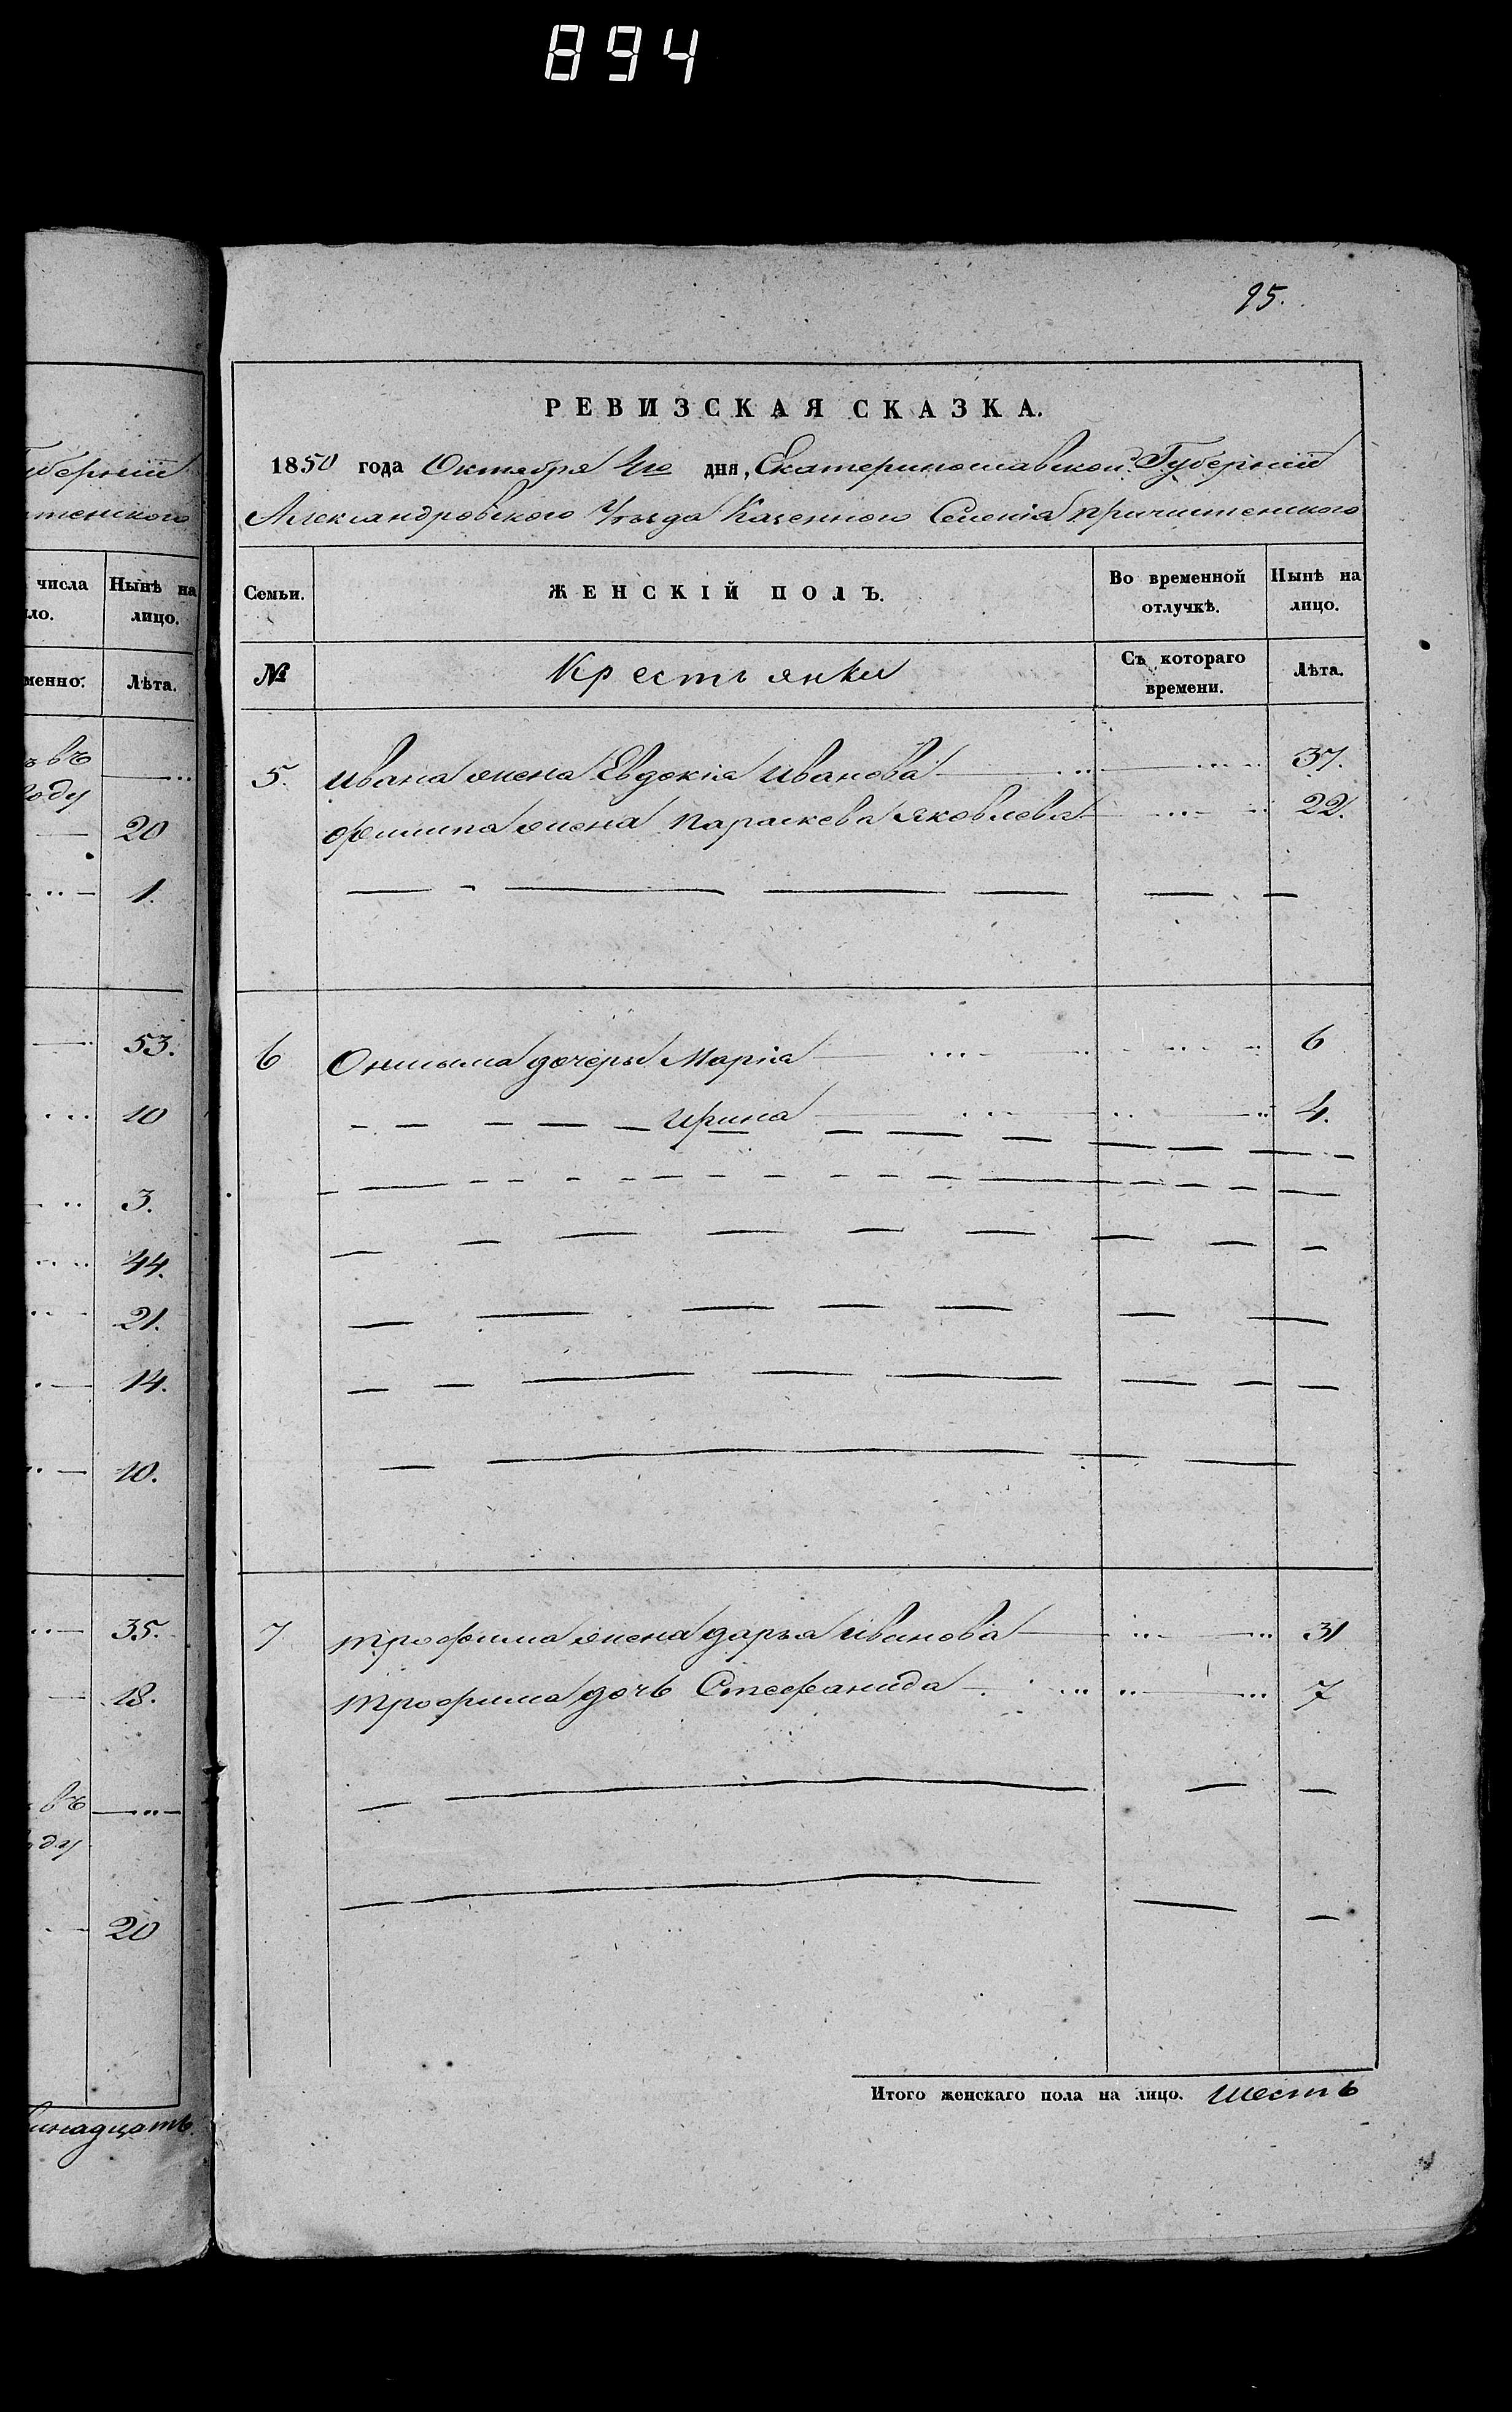 894
уберніи
тенского
числа
ло.
Нынѣ на
лицо.
менно:
Лѣта.
въ
году
20
1.
53.
10
3.
44.
21.
14.
10.
35.
18.
въ
оду
20
инадцать.
95.
РЕВИЗСКАЯ СКАЗКА.
1850 года Октября 4го дня, Екатеринославской Губерніи
Александровского Уѣзда Казенного Селенія Причистенского
Семьи.
ЖЕНСКІЙ ПОЛЪ.
Во временной
отлучкѣ.
Нынѣ на
лицо.
№
Крестьянки
Съ котораго
времени.
Лѣта.
5. Ивана жена Евдокія Иванова 37.
Филипа жена Параскева Яковлева 22.
6 дочеры Марія 6
Ирина 4.
7 Трофима жена Дарья Иванова 31
Трофима дочь Стефанида 7
Итого женскаго пола на лицо. шесть